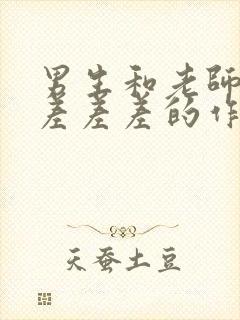 男生和老师
差差差的作
天蚕土豆